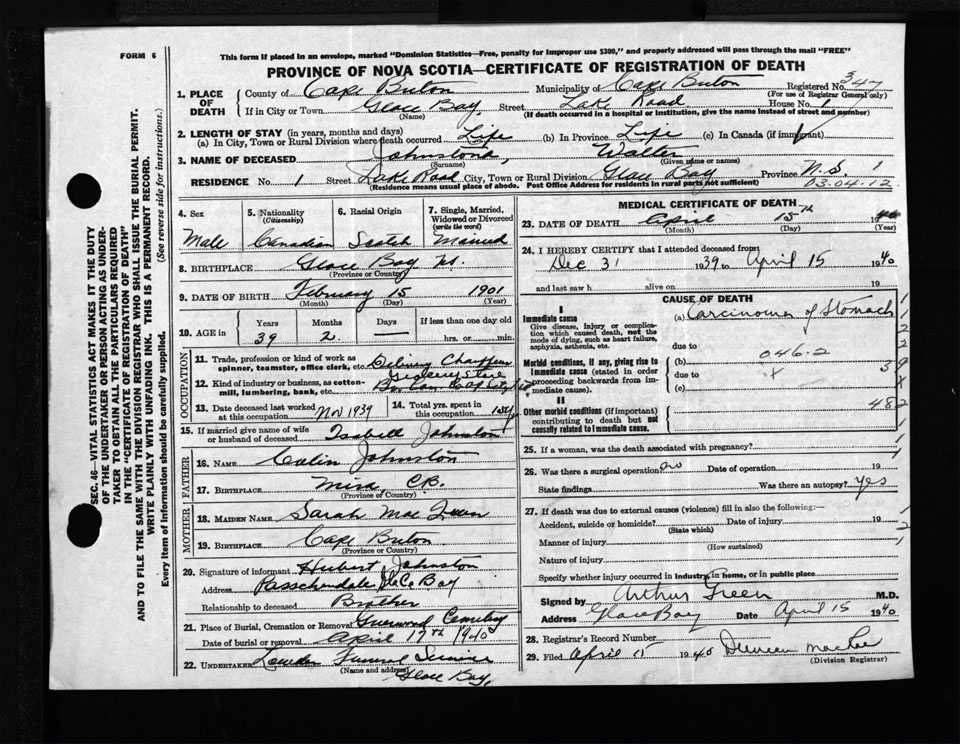 FORM 6
This form if placed in an envelope, marked "Dominion Statistics—Free, penalty for improper use $300," and properly addressed will pass through the mail "FREE"
PROVINCE OF NOVA SCOTIA—CERTIFICATE OF REGISTRATION OF DEATH
SEC. 46—VITAL STATISTICS ACT MAKES IT THE DUTY
OF THE UNDERTAKER OR PERSON ACTING AS UNDER-
TAKER TO OBTAIN ALL THE PARTICULARS REQUIRED
IN THE "CERTIFICATE OF REGISTRATION OF DEATH"
AND TO FILE THE SAME WITH THE DIVISION REGISTRAR WHO SHALL ISSUE THE BURIAL PERMIT.
WRITE PLAINLY WITH UNFADING INK. THIS IS A PERMANENT RECORD.
Every item of information should be carefully supplied. (See reverse side for instructions.)
1. PLACE OF DEATH County of Cape Breton Municipality of Cape Breton Registered No. 347
(For use of Registrar General only)
If in City or Town Glace Bay Street Lake Road House No. 1
(Name) (If death occurred in a hospital or institution, give the name instead of street and number)
2. LENGTH OF STAY (in years, months and days)
(a) In City, Town or Rural Division where death occurred Life (b) In Province Life (c) In Canada (if immigrant)
3. NAME OF DECEASED Johnston, Walter
(Surname) (Given name or names)
RESIDENCE No. 1 Street Lake Road City, Town or Rural Division Glace Bay Province N.S. 1
(Residence means usual place of abode. Post Office Address for residents in rural parts not sufficient) 03.04.12
4. Sex 5. Nationality (Citizenship) 6. Racial Origin 7. Single, Married, Widowed or Divorced (write the word)
Male Canadian Scotch Married
8. BIRTHPLACE Glace Bay NS.
(Province or Country)
9. DATE OF BIRTH February 15 1901
(Month) (Day) (Year)
10. AGE in Years Months Days If less than one day old
39 2 — hrs. or min.
OCCUPATION
11. Trade, profession or kind of work as
spinner, teamster, office clerk, etc.
12. Kind of industry or business, as cotton-
mill, lumbering, bank, etc.
13. Date deceased last worked at this occupation Nov 1939 14. Total yrs. spent in this occupation
15. If married give name of wife or husband of deceased Isabell Johnston
FATHER
16. NAME Colin Johnston
17. BIRTHPLACE Mira, C.B.
(Province or Country)
MOTHER
18. MAIDEN NAME Sarah Mac Queen
19. BIRTHPLACE Cape Breton
(Province or Country)
20. Signature of informant Hubert Johnston
Address Passchendale Glace Bay
Relationship to deceased Brother
21. Place of Burial, Cremation or Removal Greenwood Cemetery
Date of burial or removal April 17th 1940
22. UNDERTAKER Funeral Service
(Name and address) Glace Bay,
MEDICAL CERTIFICATE OF DEATH
23. DATE OF DEATH April 15th 40
(Month) (Day) (Year)
24. I HEREBY CERTIFY that I attended deceased from
Dec 31 1939 to April 15 1940
and last saw h alive on 19
CAUSE OF DEATH
I
Immediate cause (a) Carcinoma of Stomach
Give disease, injury or complica-
tion which caused death, not the
mode of dying, such as heart failure,
asphyxia, asthenia, etc.
due to
Morbid conditions, if any, giving rise to
immediate cause (stated in order
proceeding backwards from im-
mediate cause).
(b) 046.2
due to
(c)
II
Other morbid conditions (if important)
contributing to death but not
causally related to immediate cause.
482
25. If a woman, was the death associated with pregnancy?
26. Was there a surgical operation no Date of operation 19
State findings Was there an autopsy? yes
27. If death was due to external causes (violence) fill in also the following:—
Accident, suicide or homicide? Date of injury 19
(State which)
Manner of injury
(How sustained)
Nature of injury
Specify whether injury occurred in industry, in home, or in public place
Signed by Arthur Green M.D.
Address Glace Bay Date April 15 1940
28. Registrar's Record Number
29. Filed April 15 1940 Duncan
(Division Registrar)